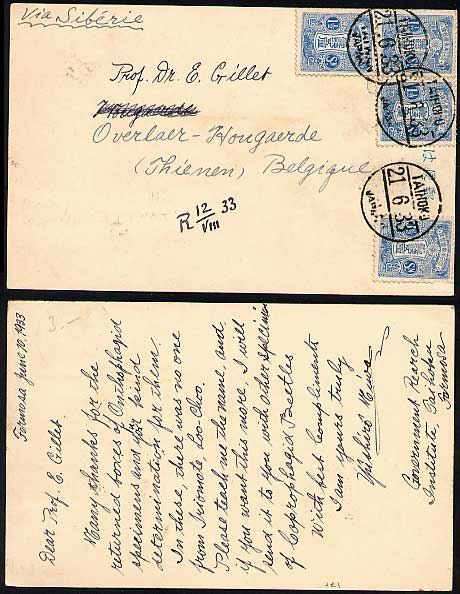 Via Sibérie
Prof. Dr. E. Gillet
Hougaerde
Overlaer-Hougaerde
(Thienen) Belgique
R 12/VIII 33
TAIHOKU
21.6.33
JAPAN
TAIHOKU
21.6.33
JAPAN
TAIHOKU
21.6.33
JAPAN
3.-
Formosa June 20, 1933
Dear Prof. E. Gillet
Many thanks for the
returned boxes of Onthophagid
specimens and your kind
determination for them.
In these, there was no one
from Iriomote, Loo-Choo.
Please teach me the name, and
if you want this more, I will
send it to you with other specimens
of Coprophagid Beetles
With best compliments
I am yours truly
Yushiro Miwa
Government Research
Institute, Taihoku
Formosa